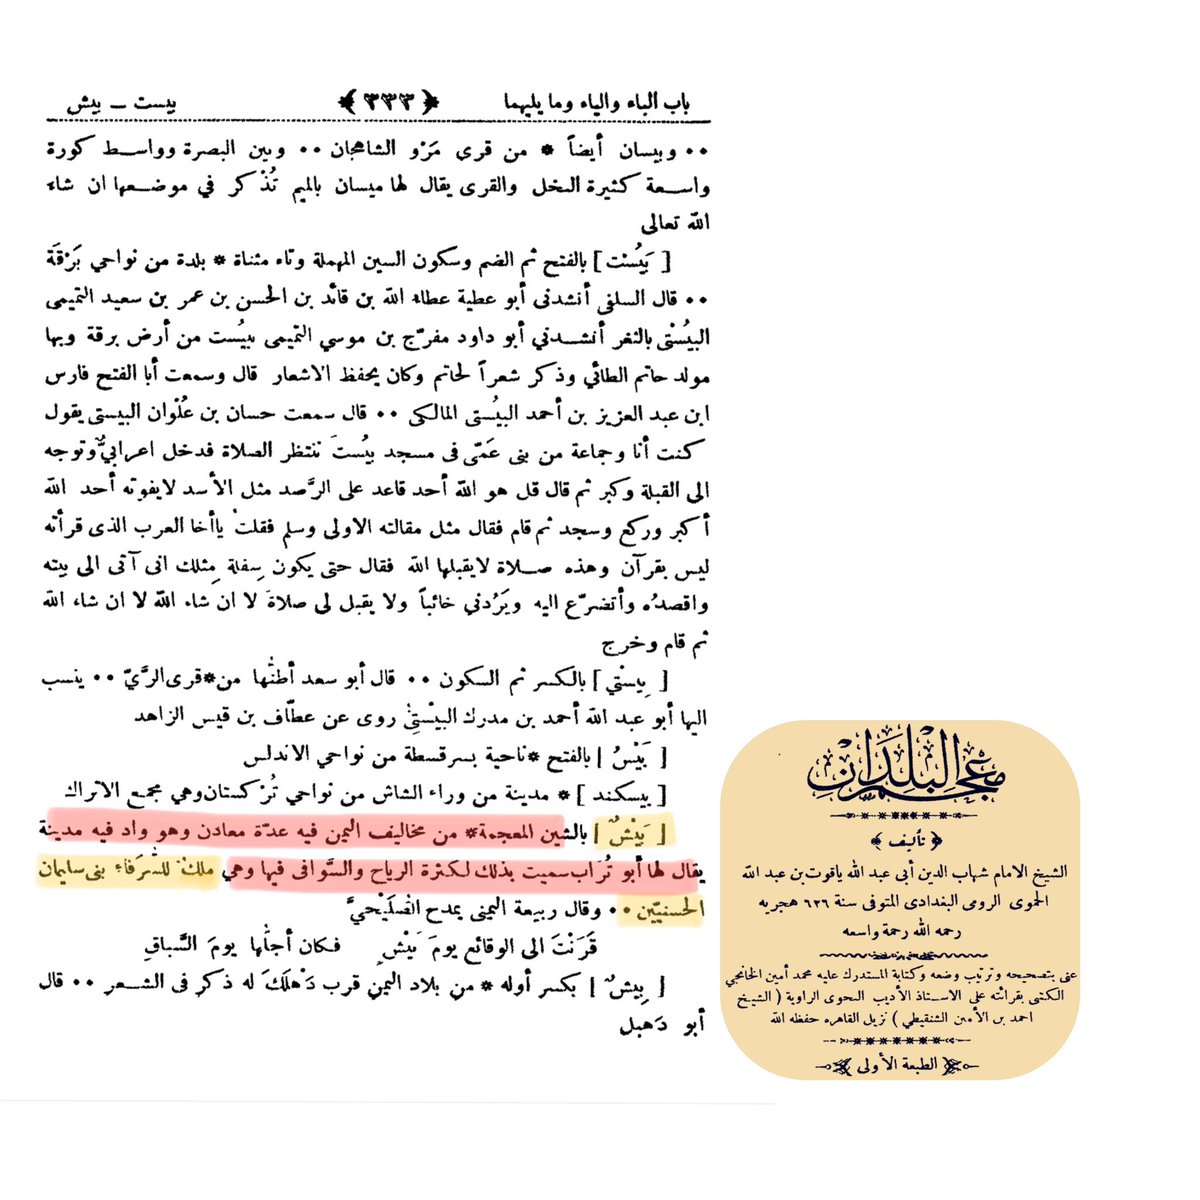 باب الباء والياء وما يليهما ﴿ ٣٣٣ ﴾ بيست ــ بيش
•• وبيسان أيضاً * من قرى مَرْو الشاهجان •• وبين البصرة وواسط كورة
واسعة كثيرة النخل والقرى يقال لها ميسان بالميم تُذْكر في موضعها ان شاء
الله تعالى
[ بَيُسْت ] بالفتح ثم الضم وسكون السين المهملة وتاء مثناة * بلدة من نواحي بَرْقَة
•• قال السلفى أنشدنى أبو عطية عطاء الله بن قائد بن الحسن بن عمر بن سعيد التميمى
البيُسْتى بالثغر أنشدني أبو داود مفرّج بن موسي التميمى ببيُست من أرض برقة وبها
مولد حاتم الطائي وذكر شعراً لحاتم وكان يحفظ الاشعار قال وسمعت أبا الفتح فارس
ابن عبد العزيز بن أحمد البيُستى المالكى •• قال سمعت حسان بن عُلْوان البيستى يقول
كنت أنا وجماعة من بنى عَمّى فى مسجد بيُستَ ننتظر الصلاة فدخل اعرابيٌّ وتوجه
الى القبلة وكبر ثم قال قل هو الله أحد قاعد على الرَّصد مثل الأسد لايفوته أحد الله
أكبر وركع وسجد ثم قام فقال مثل مقالته الاولى وسلم فقلتْ ياأخا العرب الذى قرأته
ليس بقرآن وهذه صلاة لايقبلها الله فقال حتى يكون سِفلة مِثلك انى آتى الى بيته
واقصدُه وأتضرّع اليه ويَرُدني خائباً ولا يقبل لى صلاةً لا ان شاء الله لا ان شاء الله
ثم قام وخرج
[ بِيستْي ] بالكسر ثم السكون •• قال أبو سعد أظنُّها من*قرى الرَّيّ •• ينسب
اليها أبو عبد الله أحمد بن مدرك البيْستِىّ روى عن عطّاف بن قيس الزاهد
[ بَيْسُ ] بالفتح *ناحية بسرقسطة من نواحي الاندلس
[ بيسكند ] * مدينة من وراء الشاش من نواحي تُرْكستان وهي مجمع الاتراك
[ بَيْشٌ ] بالشين المعجمة* من مخاليف اليمن فيه عدّة معادن وهو واد فيه مدينة
يقال لها أبو تُرَاب سميت بذلك لكثرة الرياح والسَّوافى فيها وهي ملكْ للشُّرَفاء بنى سليمان
الحسنيّين •• وقال ربيعة اليمنى يمدح الصُّلَيْحيَّ
قَرَنْتَ الى الوقائع يومَ بَيْشٍ فكان أجلّها يومَ السَّباقِ
[ بِيشٌ ] بكسر أوله * من بلاد اليمن قرب دَهْلَكَ له ذكر فى الشعر •• قال
أبو دَهبل
معجم البلدان
﴿ تأليف ﴾
الشيخ الامام شهاب الدين أبى عبد الله ياقوت بن عبد الله
الحموى الرومى البغدادى المتوفى سنة ٦٢٦ هجريه
رحمه الله رحمة واسعه
عنى بتصحيحه وترتيب وضعه وكتابة المستدرك عليه محمد أمين الخانجي
الكتبى بقراءته على الاستاذ الأديب النحوى الراوية ( الشيخ
احمد بن الأمين الشنقيطي ) نزيل القاهره حفظه الله
﴿ الطبعة الأولى ﴾